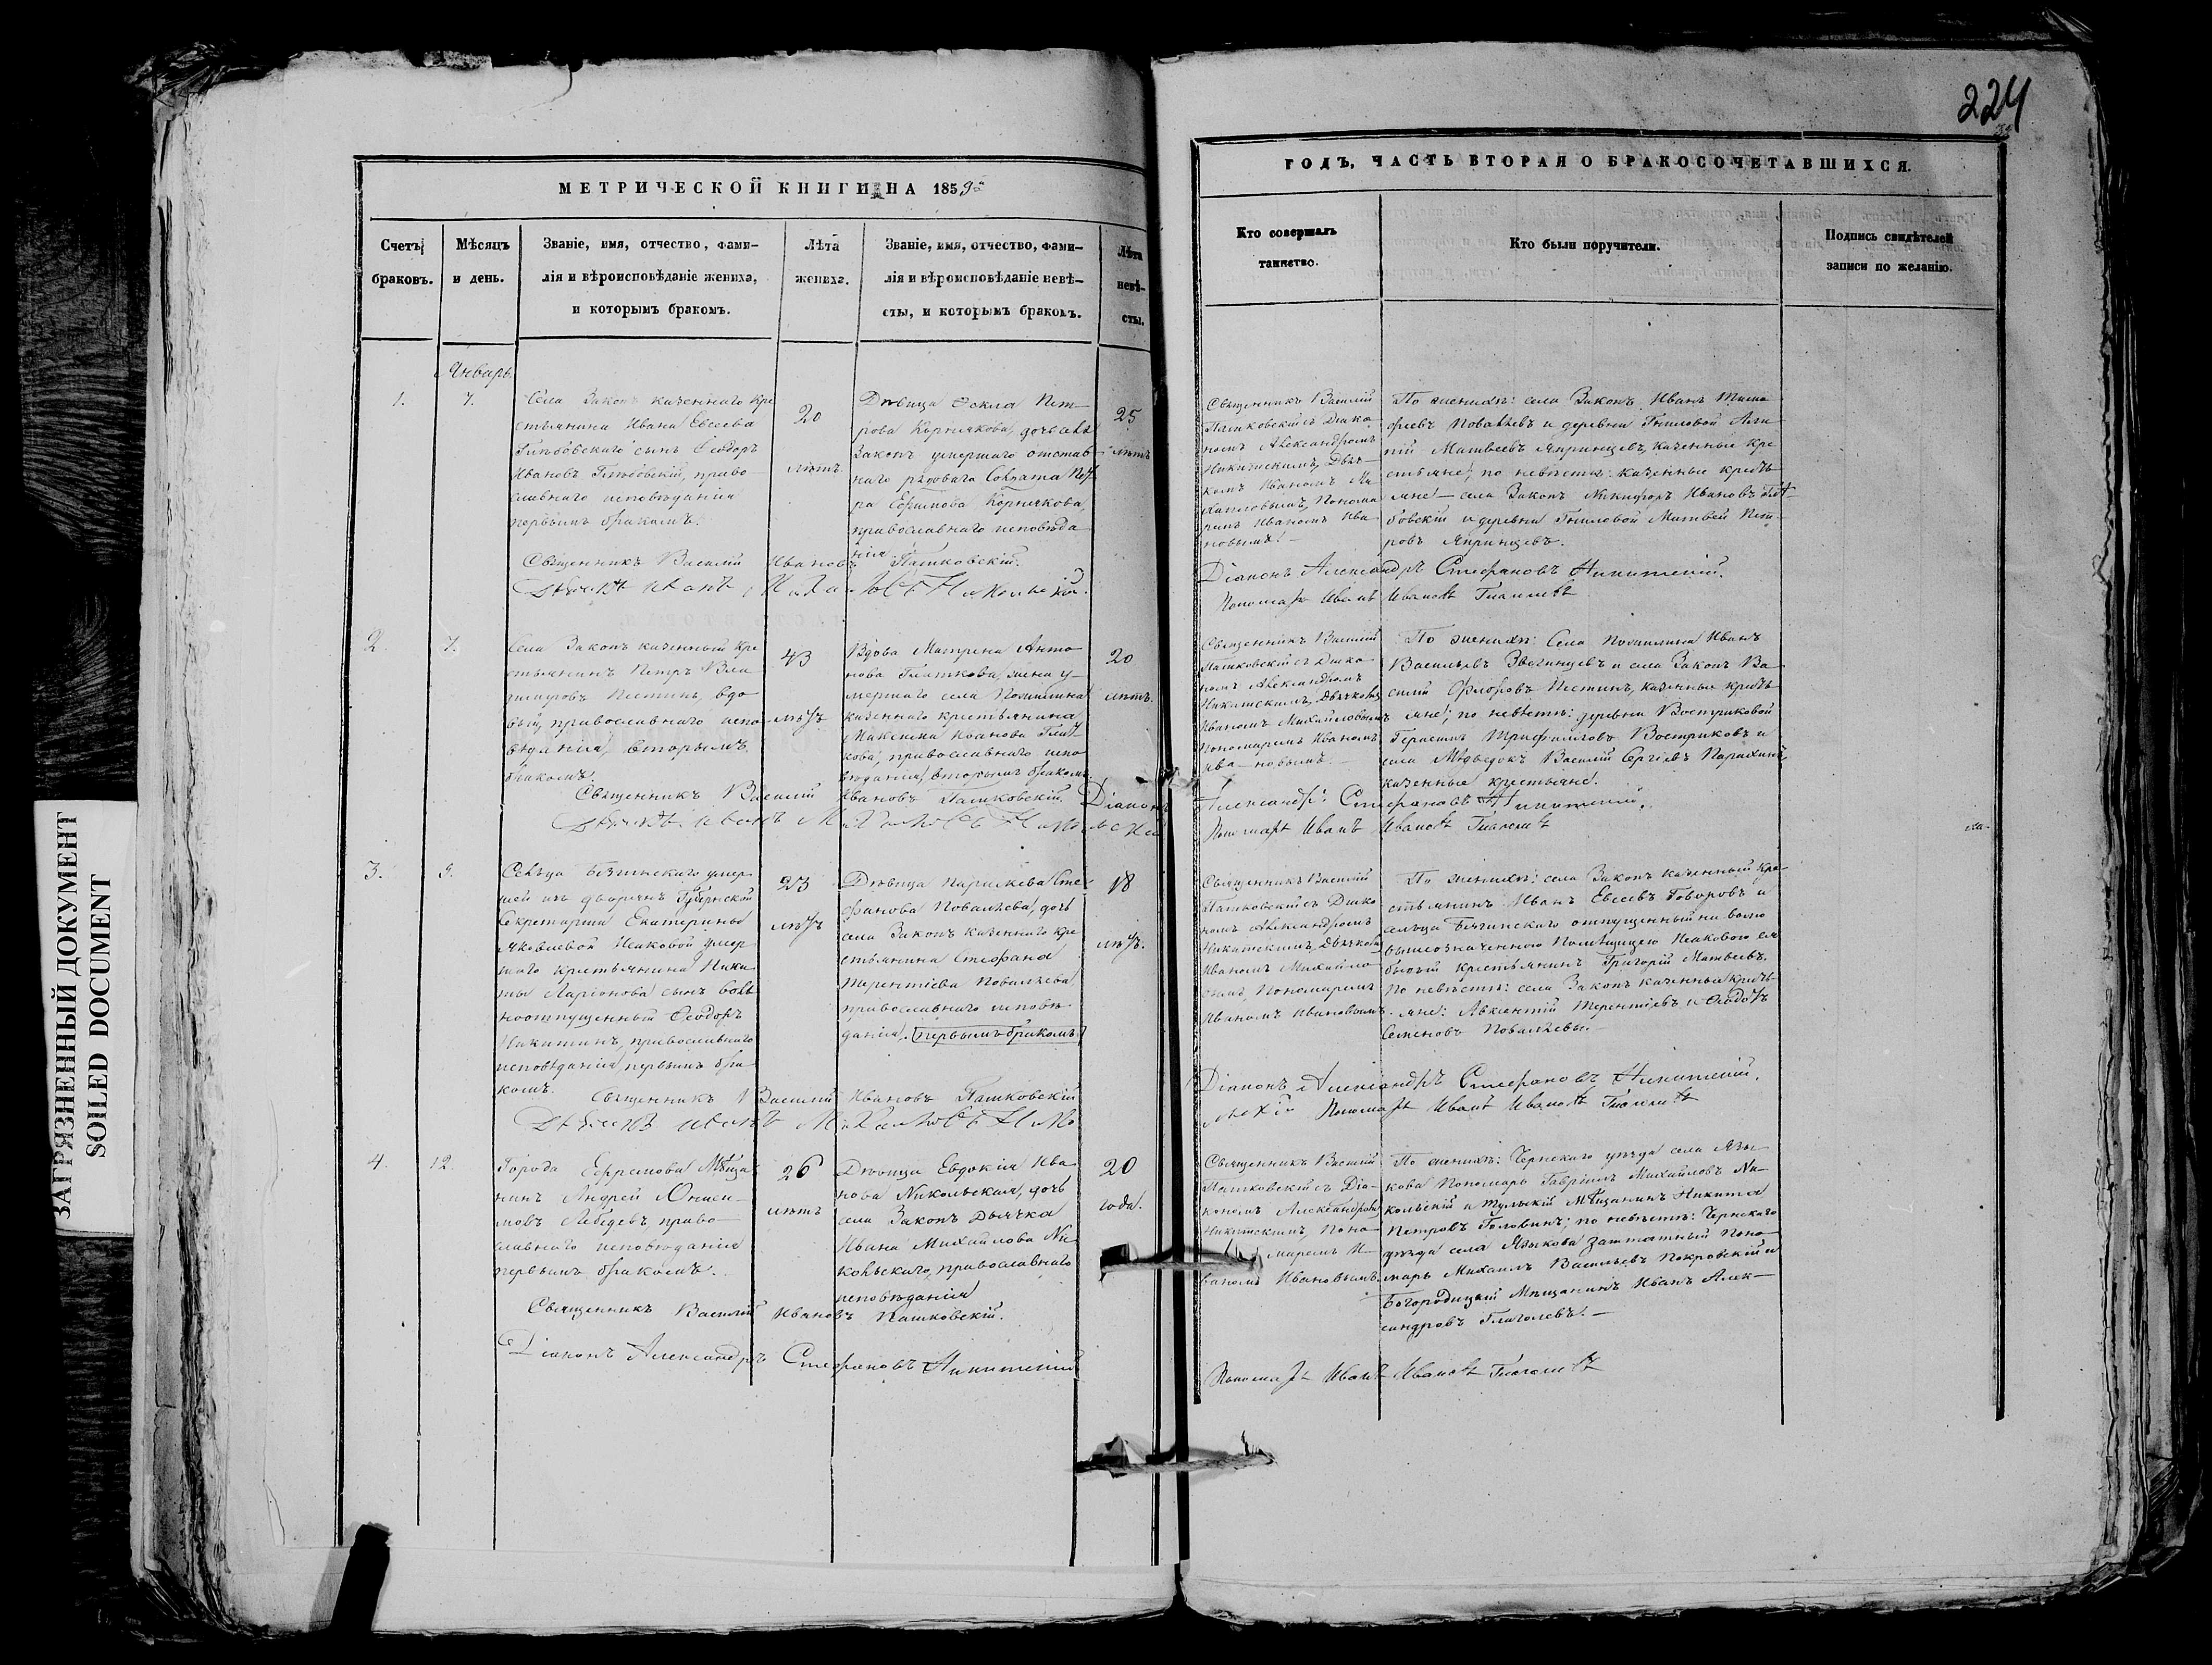 224
МЕТРИЧЕСКОЙ КНИГИ НА 1859й
ГОДЪ, ЧАСТЬ ВТОРАЯ О БРАКОСОЧЕТАВШИХСЯ.
Счетъ
браковъ.
Мѣсяцъ
и день.
Званіе, имя, отчество, фами-
лія и вѣроисповѣданіе жениха,
и которымъ бракомъ.
Лѣта
жениха.
Званіе, имя, отчество, фами-
лія и вѣроисповѣданіе невѣ-
сты, и которымъ бракомъ.
Лѣта
невѣ-
сты.
Кто совершалъ
таинство.
Кто были поручители.
Подпись свидѣтелей
записи по желанію.
Январь
1.
7.
Села Закопъ казеннаго кре
стьянина Ивана Евсеева
сынъ Ѳеодоръ
Ивановъ право-
славнаго исповѣданія
первымъ бракомъ.
20
лѣтъ
Дѣвица Ѳекла Пет-
рова Корнякова, дочь села
Закопъ умершаго отстав-
наго рядоваго Солдата Пет
ра Ефимова Корнякова,
православнаго исповѣда
нія
25
лѣтъ
Священникъ Василій
Пашковскій съ Діако
номъ Александромъ
Никитскимъ, Дьяч-
комъ Иваномъ Ми
хаиловымъ, Понома
ремъ Иваномъ Ива
новымъ. –
По женихѣ: села Закопъ Иванъ Тимо
феевъ Поваляевъ и деревни Гниловой
Матвеевъ Япринцевъ, казенные кре
стьяне; по невѣстѣ: казенные кресть
яне – села Закопъ Никифоръ Ивановъ
бовскій и деревни Гниловой Матвей Пет-
ровъ Япринцевъ.
Священникъ Василій Ивановъ Пашковскій.
Дьячекъ Иванъ Михаиловъ Никольскій
Діаконъ Александръ Стефановъ Никитскій.
Пономарь Иванъ Ивановъ Глаголевъ
2.
7.
Села Закопъ казенный кре
стьянинъ Петръ
Пестинъ, вдо
вый, православнаго испо
вѣданія, вторымъ
бракомъ.
43
лѣтъ
Вдова Матрена Анто
нова Глаткова, жена у-
мершаго села
казеннаго крестьянина
Максима Иванова Глат
кова, православнаго испо
вѣданія, вторымъ бракомъ.
20
лѣтъ.
Священникъ Василій
Пашковскій съ Діако
номъ Александромъ
Никитскимъ, Дьячкомъ
Иваномъ Михайловымъ
Пономаремъ Иваномъ
Ива новымъ. –
По женихѣ: Села Иванъ
Васильевъ Звегинцевъ и села Закопъ Ва
силій Флоровъ Пестинъ, казенные кресть
яне; по невѣстѣ: деревни Востриковой
Герасимъ Трифоновъ Востриковъ и
села Медведокъ Василій Сергѣевъ Парахинъ,
казенные крестьяне.
Священникъ Василій Ивановъ Пашковскій. Діаконъ
Александръ Стефановъ Никитскій.
Дьячекъ Иванъ Михаиловъ Никольскій
Пономарь Иванъ Ивановъ Глаголевъ
3.
9.
Сельца умер
шей изъ дворянъ Губернской
Секретарши Екатерины
Яковлевой Исаковой умер
шаго крестьянина Ники
ты Ларіонова сынъ воль
ноотпущенный Ѳеодоръ
Никитинъ, православнаго
исповѣданія, первымъ бра
комъ.
23
лѣтъ
Дѣвица Параскева Сте
фанова Поваляева, дочь
села Закопъ казеннаго кре
стьянина Стефана
Терентіева Поваляева
православнаго исповѣ
данія, первымъ бракомъ
18
лѣтъ.
Священникъ Василій
Пашковскій съ Діако
номъ Александромъ
Никитскимъ, Дьячкомъ
Иваномъ Михайло
вымъ, Пономаремъ
Иваномъ Ивановымъ.
По женихѣ: села Закопъ казенный кре
стьянинъ Иванъ Евсеевъ Говоровъ и
сельца отпущенный на волю
вышеозначенною Помѣщицею Исаковою ея
бывшій крестьянинъ Григорій Матвеевъ.
По невѣстѣ: села Закопъ казенные кресть
яне: Авксентій Терентіевъ и Ѳеодоръ
Семеновъ Поваляевы. –
Священникъ Василій Ивановъ Пашковскій
Діаконъ Александръ Стефановъ Никитскій.
Дьячекъ Иванъ Михаиловъ Нико
льскій Пономарь Иванъ Ивановъ Глаголевъ
4.
12.
Города Ефремова Мѣща
нинъ Андрей Ониси-
мовъ Лебедевъ, право-
славнаго исповѣданія
первымъ бракомъ.
26
лѣтъ
Дѣвица Евдокія Ива
нова Никольская, дочь
села Закопъ Дьячка
Ивана Михайлова Ни
кольскаго, православнаго
исповѣданія
20
года.
Священникъ Василій
Пашковскій съ Діа-
кономъ Александромъ
Никитскимъ, Поно
маремъ И-
ваномъ Ивановымъ.
По женихѣ: Чернскаго уѣзда села Язы-
кова Пономарь Гавріилъ Михайловъ Ни-
кольскій и тульскій Мѣщанинъ Никита
Петровъ Головинъ; по невѣстѣ: Чернскаго
уѣзда села Языкова заштатный Поно-
марь Михаилъ Васильевъ Покровскій и
Богородицкій Мѣщанинъ Иванъ Алек-
сандровъ Глаголевъ. –
Священникъ Василій Ивановъ Пашковскій.
Діаконъ Александръ Стефановъ Никитскій
Пономарь Иванъ Ивановъ Глаголевъ
ЗАГРЯЗНЕННЫЙ ДОКУМЕНТ
SOILED DOCUMENT